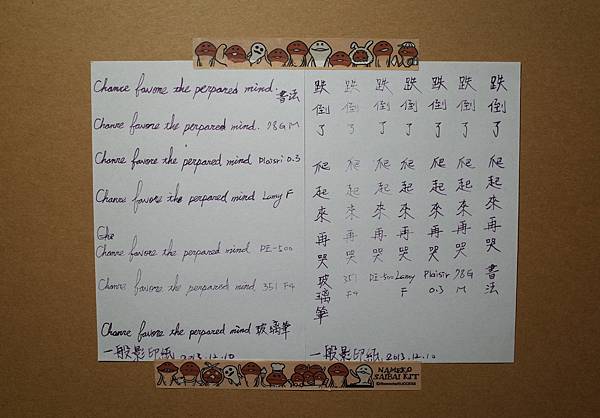 Chance favore the perpared mind. 書法
Chance favore the perpared mind. 78G M
Chance favore the perpared mind Plaisri 0.3
Chance favore the perpared mind Lamy F
Che
Chance favore the perpared mind DE-500
Chance favore the perpared mind. 351 F4
Chance favore the perpared mind 玻璃筆
一般影印紙 2013.12.10
跌倒了爬起來再哭書法
跌倒了爬起來再哭78G M
跌倒了爬起來再哭Plaisir 0.3
跌倒了爬起來再哭Lamy F
跌倒了爬起來再哭DE-500
跌倒了爬起來再哭351 F4
跌倒了爬起來再哭玻璃筆
一般影印紙 2013.12.10
NAMEKO
SAIBAI KIT